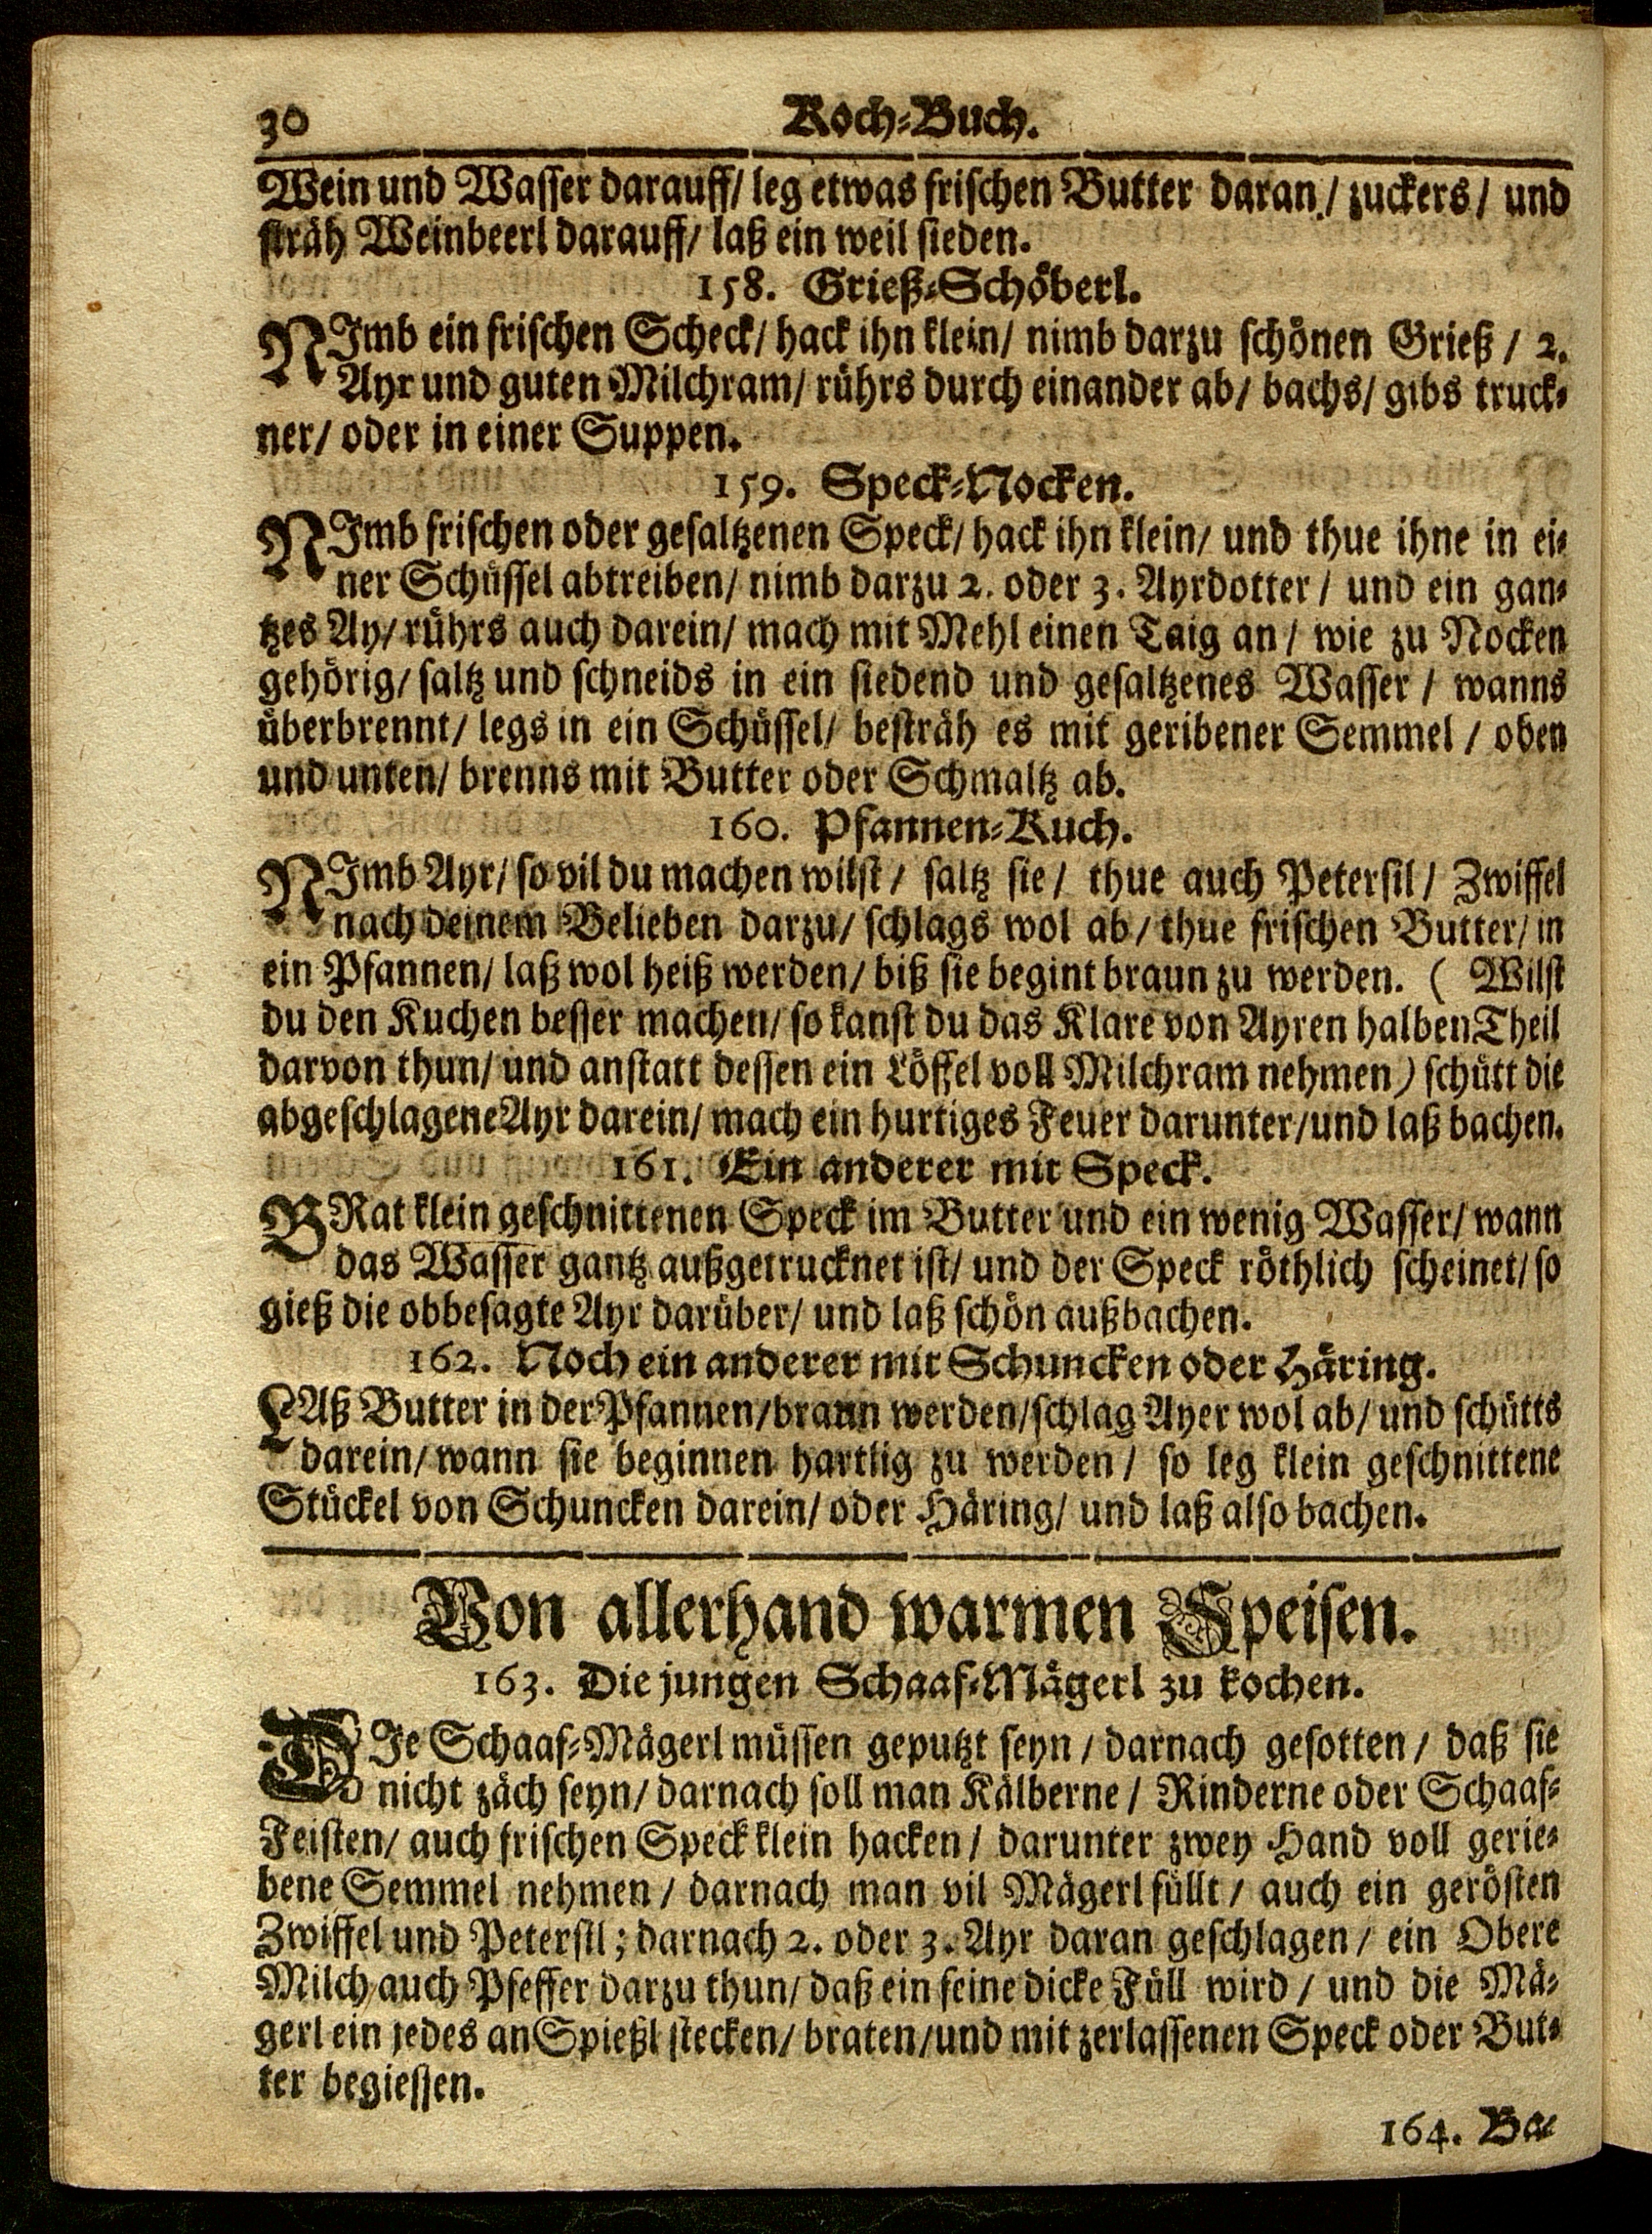 30 Koch-Buch.
Wein und Wasser darauff/ leg etwas frischen Butter daran/ zuckers/ und
sträh Weinbeerl darauff/ laß ein weil sieden.
158. Grieß-Schöberl.
NImb ein frischen Scheck/ hack ihn klein/ nimb darzu schönen Grieß / 2.
Ayr und guten Milchram/ rührs durch einander ab/ bachs/ gibs truck-
ner/ oder in einer Suppen.
159. Speck-Nocken.
NImb frischen oder gesaltzenen Speck/ hack ihn klein/ und thue ihne in ei-
ner Schüssel abtreiben/ nimb darzu 2. oder 3. Ayrdotter / und ein gan-
tzes Ay/ rührs auch darein/ mach mit Mehl einen Taig an / wie zu Nocken
gehörig/ saltz und schneids in ein siedend und gesaltzenes Wasser / wanns
überbrennt/ legs in ein Schüssel/ besträh es mit geribener Semmel / oben
und unten/ brenns mit Butter oder Schmaltz ab.
160. Pfannen-Kuch.
NImb Ayr/ so vil du machen wilst / saltz sie / thue auch Petersil / Zwiffel
nach deinem Belieben darzu/ schlags wol ab / thue frischen Butter/ in
ein Pfannen/ laß wol heiß werden/ biß sie begint braun zu werden. ( Wilst
du den Kuchen besser machen/ so kanst du das Klare von Ayren halben Theil
darvon thun/ und anstatt dessen ein Löffel voll Milchram nehmen) schütt die
abgeschlagene Ayr darein/ mach ein hurtiges Feuer darunter/und laß bachen.
161. Ein anderer mit Speck.
BRat klein geschnittenen Speck im Butter und ein wenig Wasser/ wann
das Wasser gantz außgetrucknet ist/ und der Speck röthlich scheinet/ so
gieß die obbesagte Ayr darüber/ und laß schön außbachen.
162. Noch ein anderer mit Schuncken oder Häring.
LAß Butter in der Pfannen/braun werden/schlag Ayer wol ab/ und schütts
darein/ wann sie beginnen hartlig zu werden / so leg klein geschnittene
Stückel von Schuncken darein/ oder Häring/ und laß also bachen.
Von allerhand warmen Speisen.
163. Die jungen Schaaf-Mägerl zu kochen.
DIe Schaaf-Mägerl müssen geputzt seyn / darnach gesotten / daß sie
nicht zäch seyn/ darnach soll man Kälberne / Rinderne oder Schaaf-
Feisten/ auch frischen Speck klein hacken / darunter zwey Hand voll gerie-
bene Semmel nehmen / darnach man vil Mägerl füllt / auch ein gerösten
Zwiffel und Petersil; darnach 2. oder 3. Ayr daran geschlagen / ein Obere
Milch auch Pfeffer darzu thun/ daß ein feine dicke Füll wird / und die Mä-
gerl ein jedes an Spießl stecken/ braten/und mit zerlassenen Speck oder But-
ter begiessen.
164. Ba-